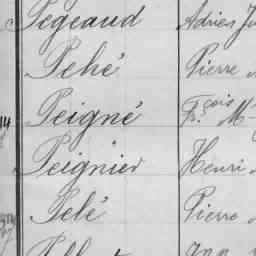 Pegeaud Adrien
Pehé Pierre
Peigné Fçois M
Peignier Henri
Pelé Pierre